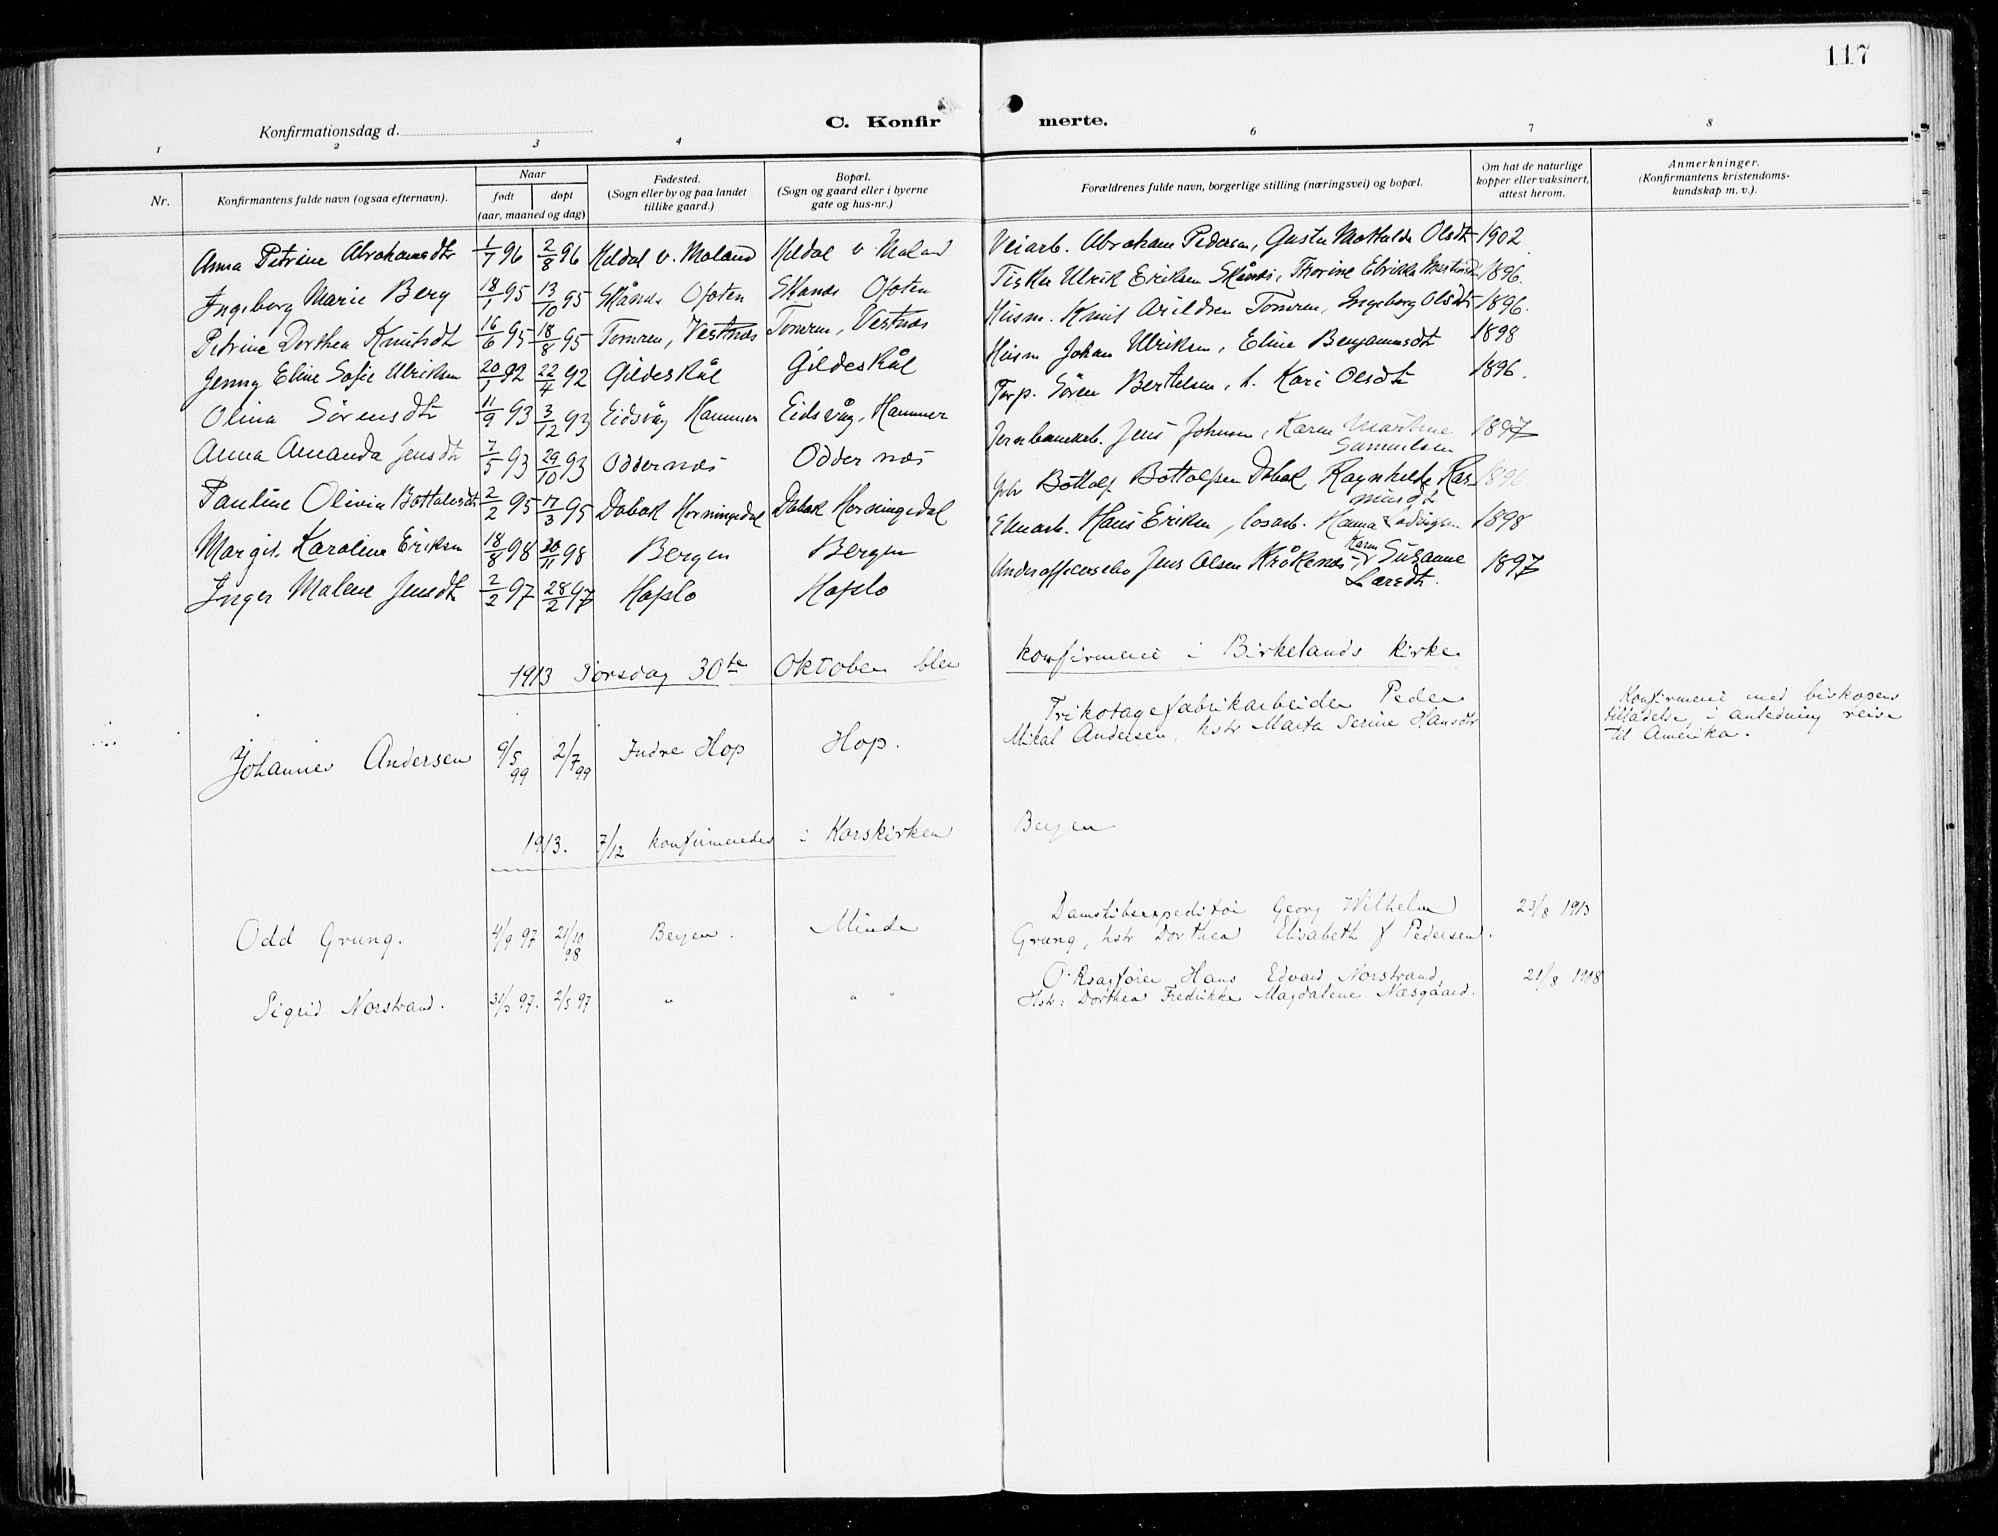 117
Konfirmationsdag d.
C. Konfirmerte.
1 2 3 4 5 6 7 8
Nr. Konfirmantens fulde navn (ogsaa efternavn). Naar født døpt (aar, maaned og dag) Fødested. (Sogn eller by og paa landet tillike gaard.) Bopæl. (Sogn og gaard eller i byerne gate og hus-nr.) Forældrenes fulde navn, borgerlige stilling (næringsvei) og bopæl. Om hat de naturlige kopper eller vaksinert, attest herom. Anmerkninger. (Konfirmantens kristendomskundskap m. v.).
Anna Petrine Abrahamsdtr 1/7 96 2/8 96 v. Moland v. Moland Veiarb. Abraham Pedersen, Olsdtr 1902
Ingeborg Marie Berg 18/1 95 13/10 95 Skånds Ofoten Skånds Ofoten Fisker Ulrik Eriksen Skånds, Thorine 1896.
Petrine Dorthea Knutsdtr 16/6 95 18/8 95 Tomren, Vestnæs Tomren, Vestnæs Husm. Knut Arildsen Tomren, Ingeborg Olsdtr 1896.
Jenny Eline Sofie Ulriksen 20/1 92 22/4 92 Gildeskål Gildeskål Husm Johan Ulriksen, Eline Benjaminsdtr 1898
Olina Sörensdtr 11/9 93 3/12 93 Eidsvåg Hammer Eidsvåg, Hammer Sören Bertelsen, h. Kari Olsdtr 1896.
Anna Amanda Jensdtr 7/5 93 29/10 93 Oddernæs Oddernæs Jernbanearb. Jens Johnsen, Karen Martine Samuelsen 1897
Pauline Olivia Bottolvsdtr 2/2 95 17/3 95 Dobak Horningsdal Dobak Horningsdal Bottolf Bottolfsen Dobak, Ragnhilda Rasmusdtr 1896
Margit Karoline Eriksen 18/8 98 20/11 98 Bergen Bergen Hans Eriksen, losarb. Hanna 1898
Inger Malene Jensdtr 2/2 97 28/2 97 Hafslo Hafslo Jens Olsen Kråkenæs, Karen Susanne Larsdtr. 1897
1913 Torsdag 30te Oktober blev konfirmeret i Birkelands kirke
Johannes Andersen 9/5 99 2/7 99 Indre Hop Hop. Trikotagefabrikarbeider Peder
Mikal Andersen, hstr Marta Serine Hansdtr
Konfirmeret med biskopens
tilladelse, i anledning reise
til Amerika.
1913. 7/12 konfirmeredes i Korskirken Bergen
Odd Grung. 4/9 97 21/10 98 Bergen. Minde Georg Wilhelm
Grung, hstr Dorthea Elisabeth f Pedersen. 23/8 1913
Sigrid Norstrand. 31/3 97. 2/5 97 " " " O.Rsagfører Hans Edvard Norstrand,
Hstr: Dorthea Fredrikke Magdalene Næsgaard. 21/8 1908